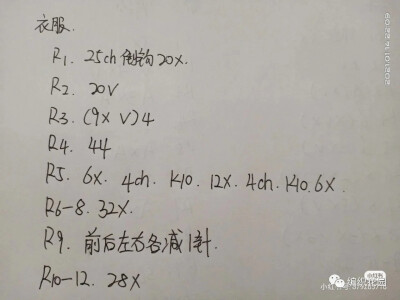 衣服.
R1. 25ch 倒钩20X.
R2. 20V
R3. (9X V)4
R4. 44
R5. 6X. 4ch. K10. 12X. 4ch. K10. 6X.
R6-8. 32X.
R9. 前后左右各减1针.
R10-12. 28X
小红书
编织